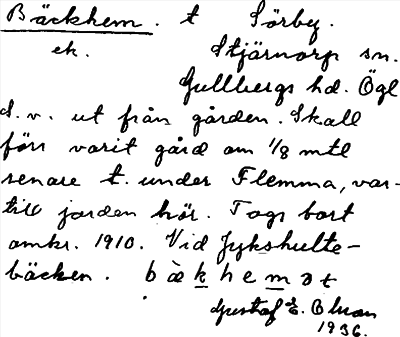 Bäckhem. t Sörby.
ek. Stjärnorp sn.
Gullbergs hd. Ögl
S. v. ut från gården. Skall
förr varit gård om 1/8 mtl
senare t. under Flemma, var-
till jorden hör. Togs bort
omkr. 1910. Vid Jykshulte-
bäcken. bàkhemət
Gustaf E. Olson
1936.